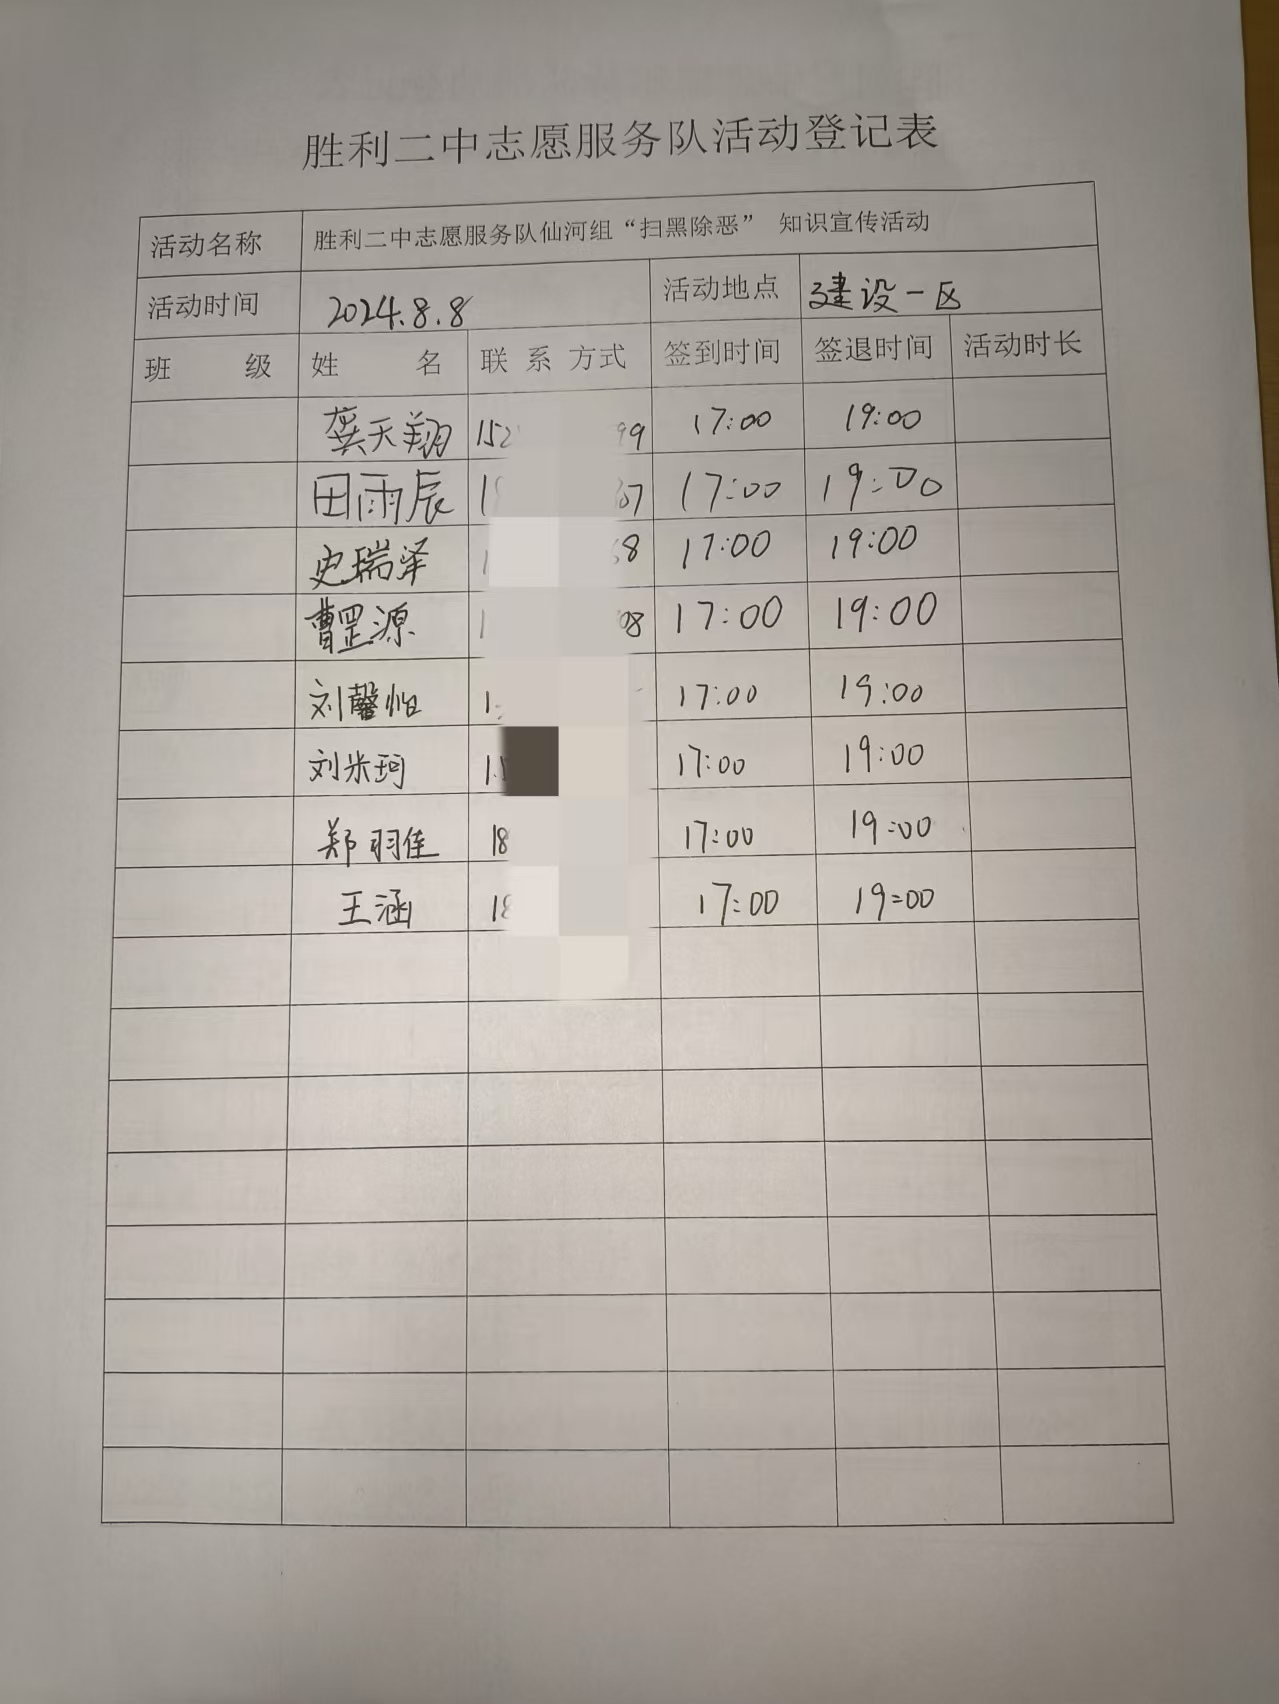 胜利二中志愿服务队活动登记表
活动名称 胜利二中志愿服务队仙河组“扫黑除恶” 知识宣传活动
活动时间 2024.8.8 活动地点 建设一区
班 级 姓 名 联 系 方式 签到时间 签退时间 活动时长
龚天翔 152 99 17:00 19:00
田雨辰 1 07 17:00 19:00
史瑞泽 1 8 17:00 19:00
曹罡源 1 08 17:00 19:00
刘馨怡 1 17:00 19:00
刘米珂 1 17:00 19:00
郑羽佳 18 17:00 19:00
王涵 18 17:00 19:00